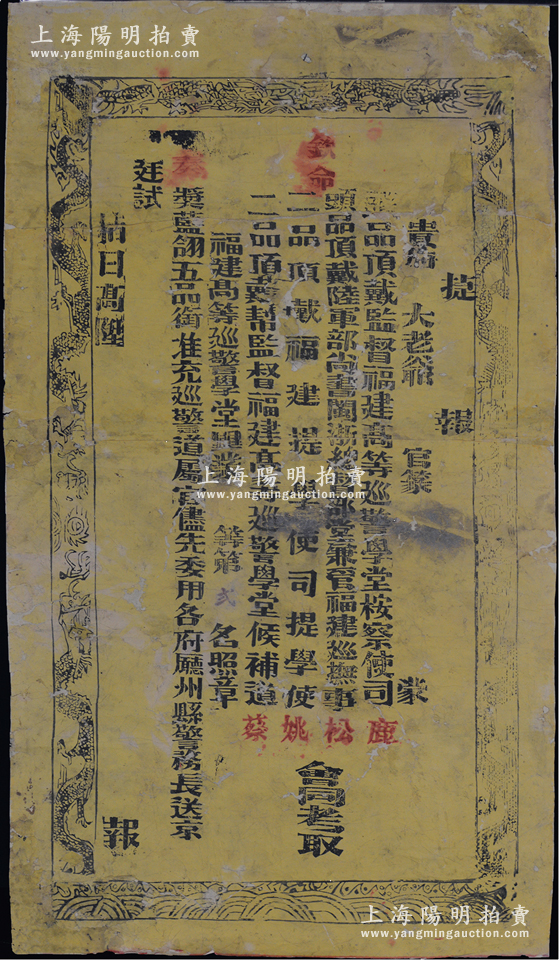 上海陽明拍賣
www.yangmingauction.com
捷報
貴府 大老爺 官篆 蒙
欽命
品頂戴監督福建高等巡警學堂按察使司
頭品頂戴陸軍部尚書閩浙總督部堂兼管福建巡撫事
二品頂戴福建提學使司提學使
二品頂戴幫監督福建高等巡警學堂候補道
鹿松姚蔡
會同考取
福建高等巡警學堂畢業 等第 弍 名照章
奏
獎藍翎五品銜准充巡警道屬官儘先委用各府廳州縣警務長送京
廷試
指日高陞
報
上海陽明拍賣
www.yangmingauction.com
上海陽明拍賣
www.yangmingauction.com